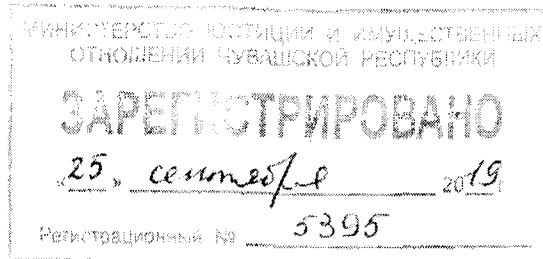 МИНИСТЕРСТВО ЮСТИЦИИ И ИМУЩЕСТВЕННЫХ
ОТНОШЕНИЙ ЧУВАШСКОЙ РЕСПУБЛИКИ
ЗАРЕГИСТРИРОВАНО
«25» сентября 2019г.
Регистрационный № 5395